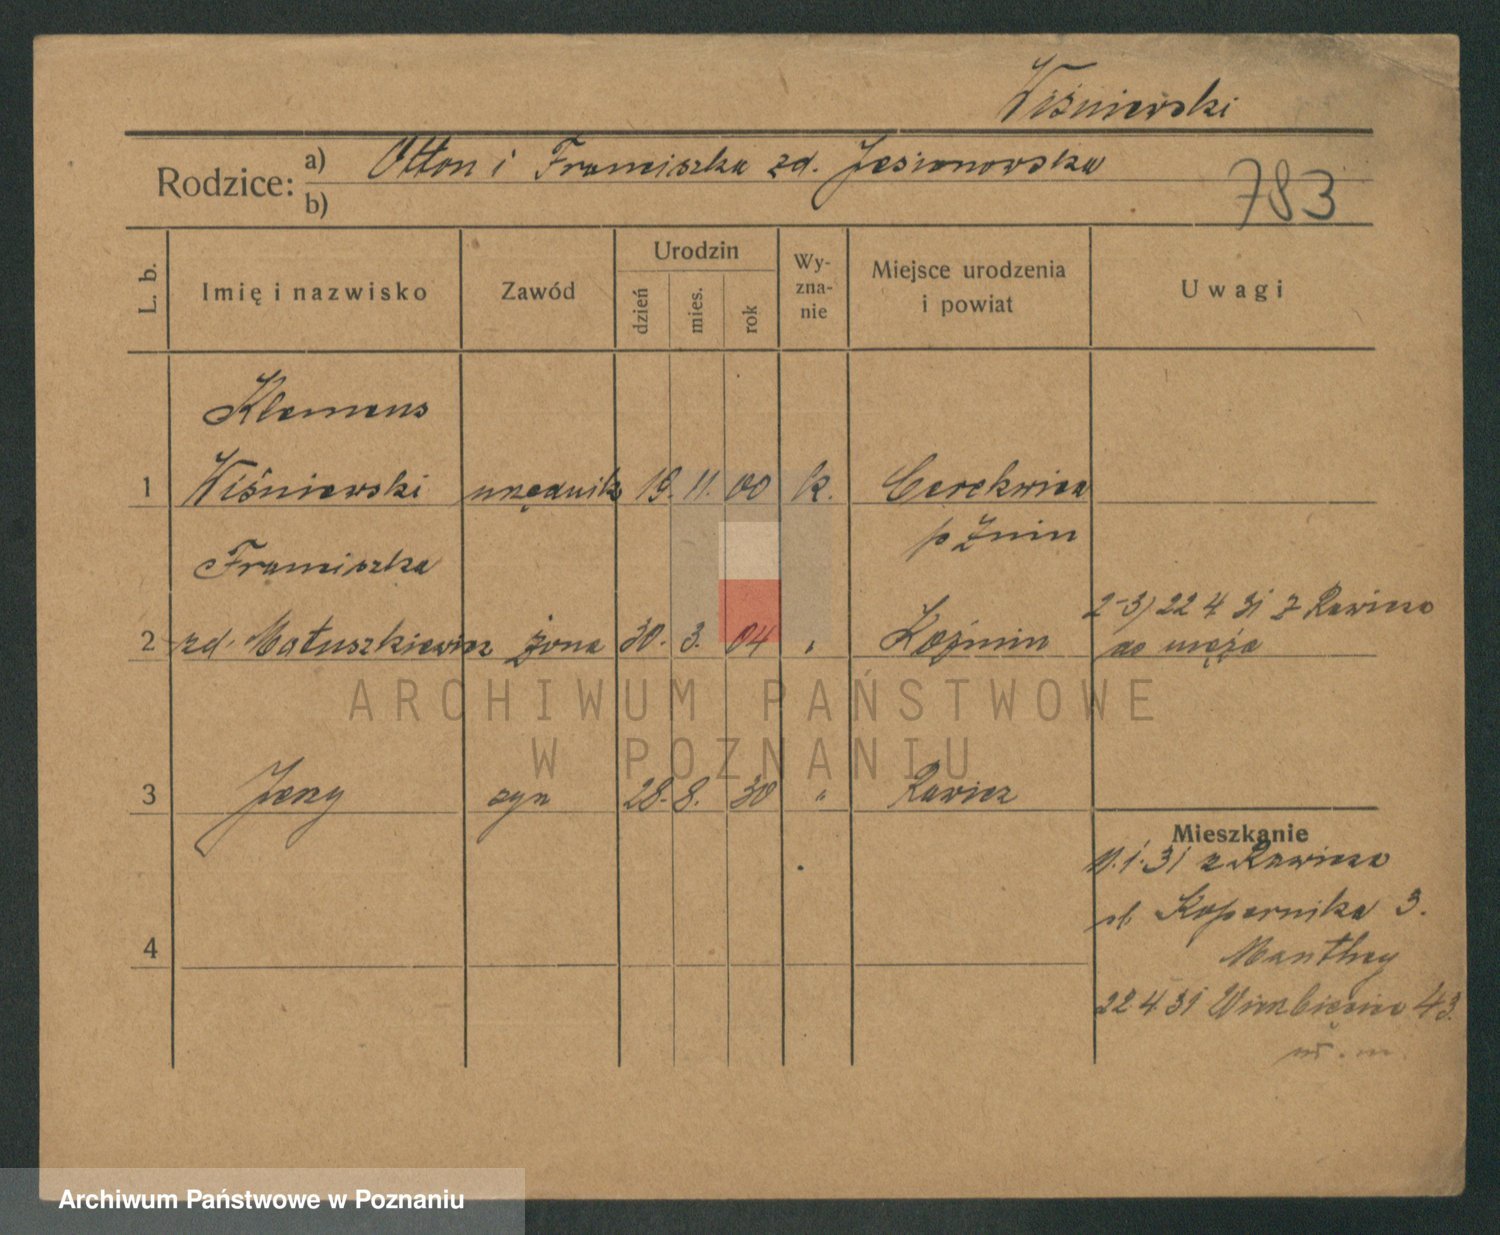 Wiśniewski
Rodzice: a) Otton i Franciszka zd. Jesionowska
b)
783
L. b.
Imię i nazwisko
Zawód
Urodzin
dzień
mies.
rok
Wy-
zna-
nie
Miejsce urodzenia
i powiat
Uwagi
Klemens
1 Wiśniewski urzędnik 19. 11. 00 k. Cerekwica
p Żnin
Franciszka
2 zd. Matuszkiewicz żona 30. 3. 04 " Koźmin
2-3) 22 4 31 z Rawicza
do męża
3 Jerzy syn 28. 8. 30 " Rawicz
4
Mieszkanie
11.1.31 z Rawicza
ul. Kopernika 3.
Manthey
22.4.31 Wierzbięcice 43.
ARCHIWUM PAŃSTWOWE
W POZNANIU
Archiwum Państwowe w Poznaniu